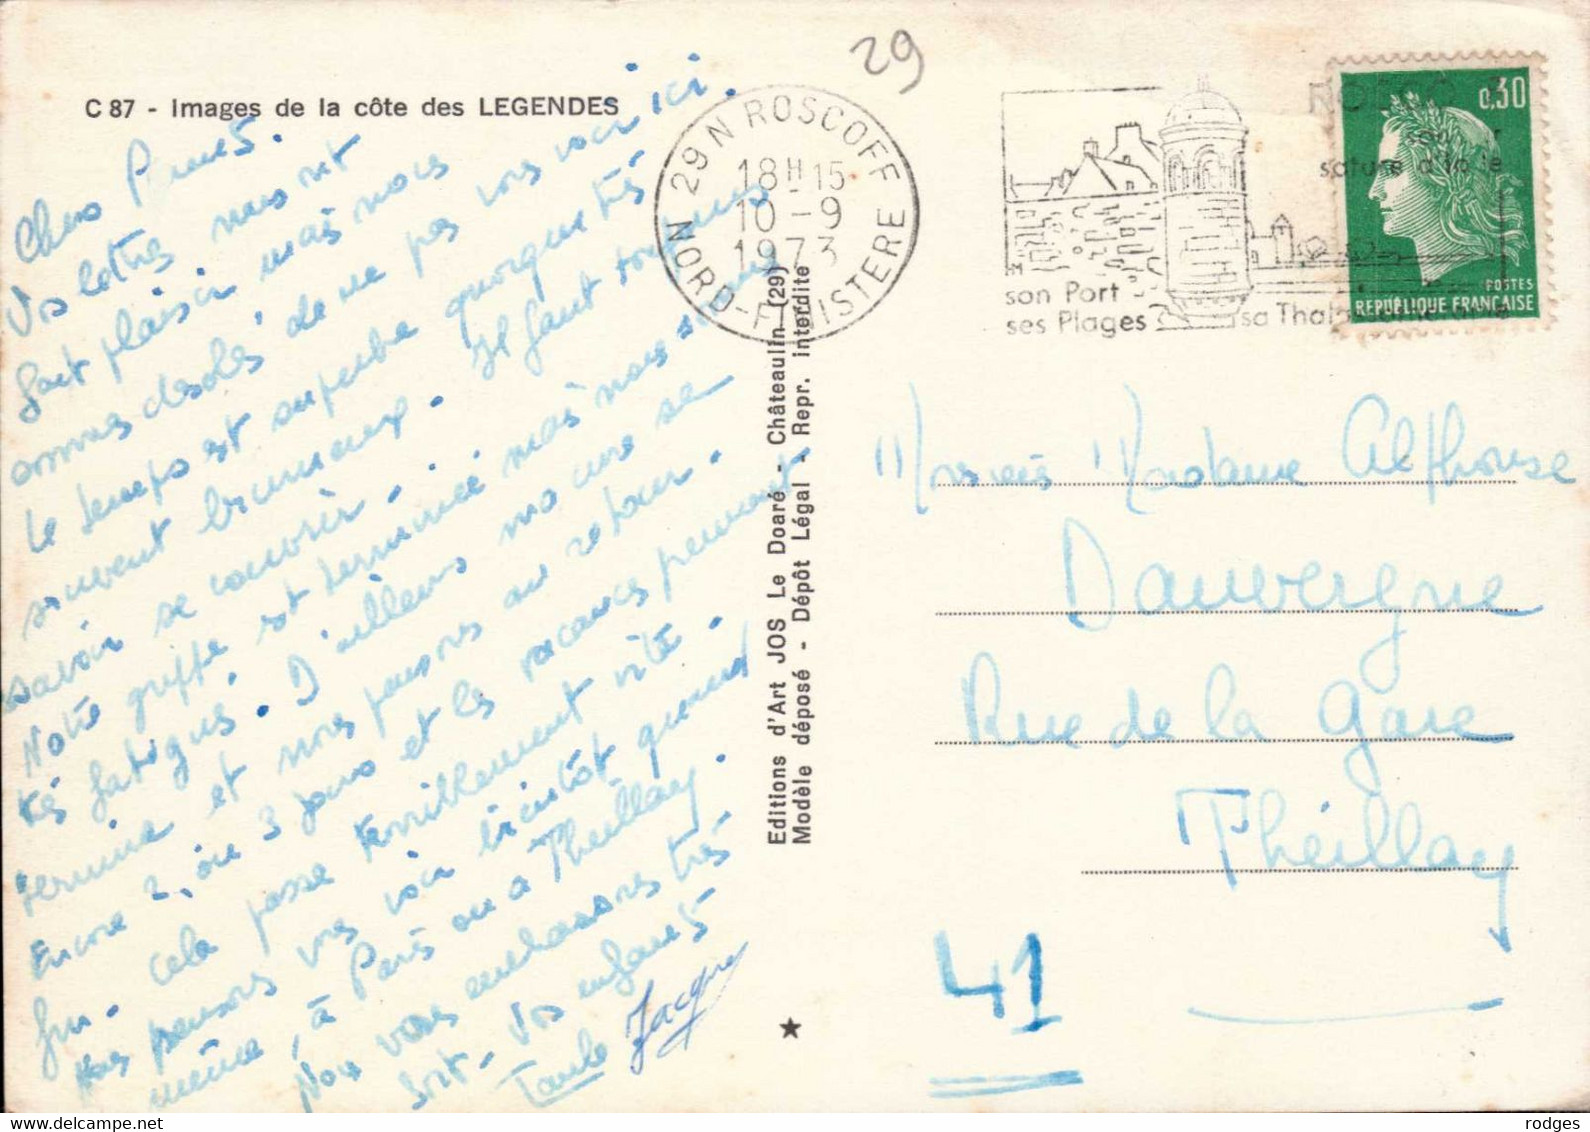 C 87 - Images de la côte des LEGENDES
29
29 N ROSCOFF
18H-15
10-9
1973
NORD-FINISTERE
son Port
ses Plages
sa Thal
0,30
POSTES
REPUBLIQUE FRANÇAISE
Chers
Vos lettres nous ont
fait plaisir mais nous
sommes désolés de ne pas vous voir ici.
Le temps est superbe quoique très
souvent brumeux. Il faut toujours
savoir se couvrir.
Notre greffe est terminée mais nous sommes
très fatigués. D'ailleurs ma cure se
termine et nous pensons au retour.
Encore 2 ou 3 jours et les vacances prennent
fin. Cela passe terriblement vite.
Nous pensons vous voir bientôt quand
même, à Paris ou à Theillay.
Nous vous embrassons très
fort. Vos enfants
Jacques
Editions d'Art JOS Le Doaré - Châteaulin (29)
Modèle déposé - Dépôt Légal - Repr. interdite
Madame Alphonse
Dauvergne
Rue de la Gare
Theillay
41
rodges